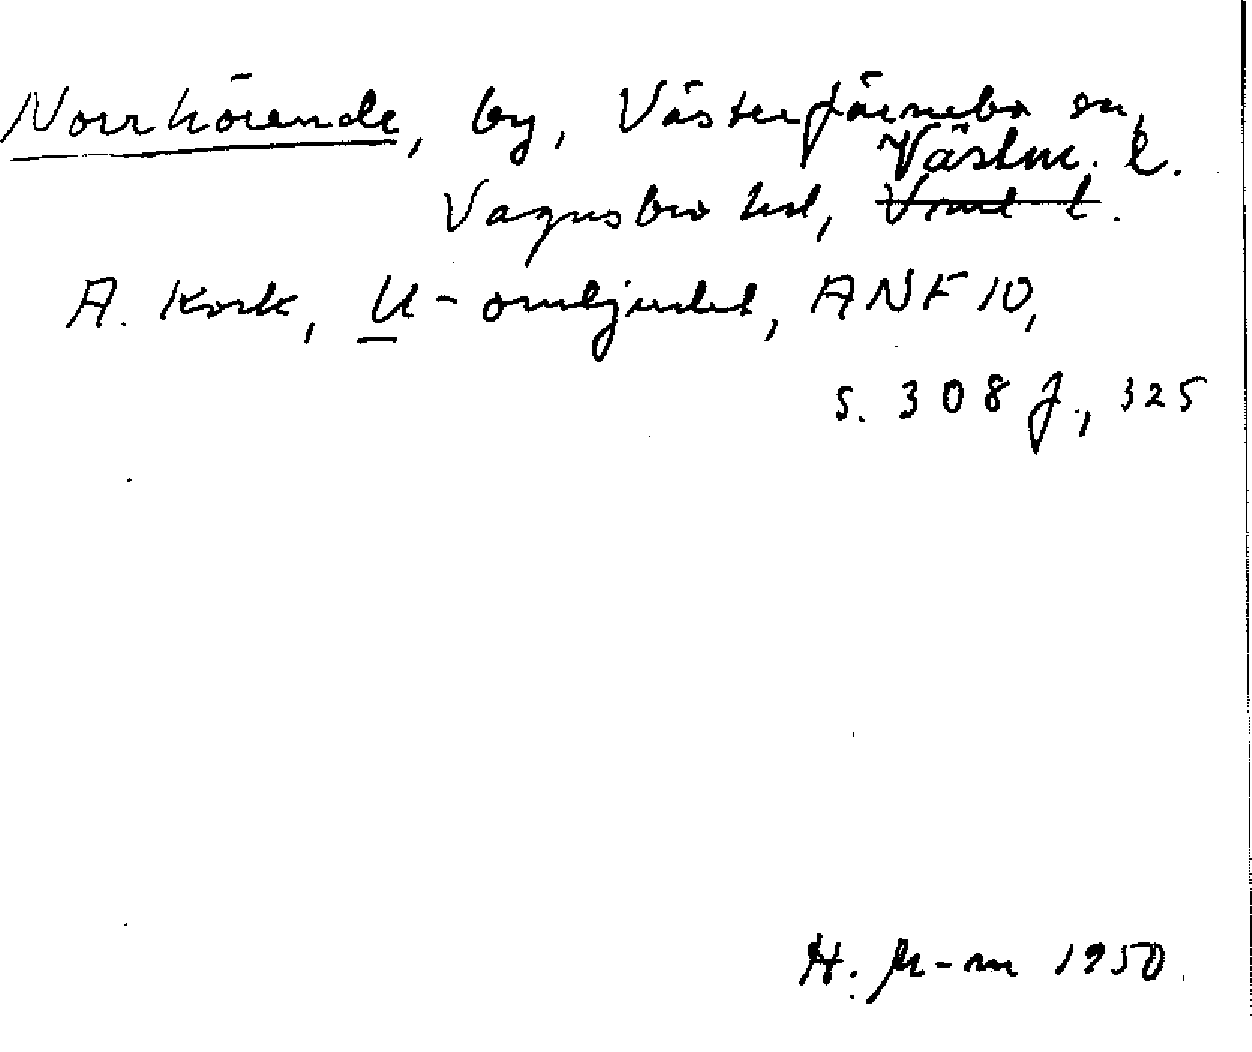 Norrhörende, by, Västerfärnebo sn,
Västm. l.
Vagnsbro hd, Vml l.
A. Kock, U-omljudet, ANF 10,
s. 308 f., 325
H. M-m 1950